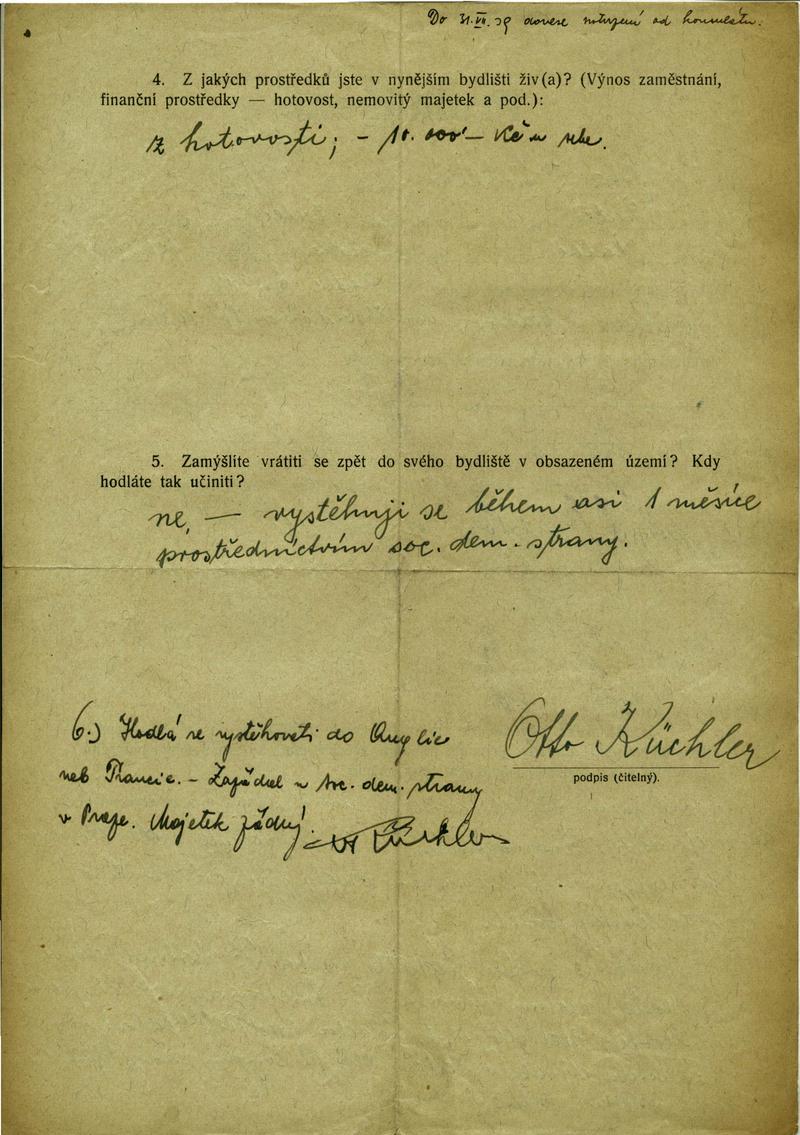 Do 31.VII.39 donese potvrzení od konsulátu.
4. Z jakých prostředků jste v nynějším bydlišti živ(a)? (Výnos zaměstnání,
finanční prostředky — hotovost, nemovitý majetek a pod.):
z hotovosti; – 10.000'— Kč u sebe.
5. Zamýšlíte vrátiti se zpět do svého bydliště v obsazeném území? Kdy
hodláte tak učiniti?
ne, — vystěhuji se během asi 1 měsíce
prostředníctvím soc. dem. strany.
6.) Hodlá se vystěhovati do Anglie
neb Francie. – Zažádal u soc. dem. strany
v Praze. Majetek žádný.
Otto Küchler
podpis (čitelný).
Küchler